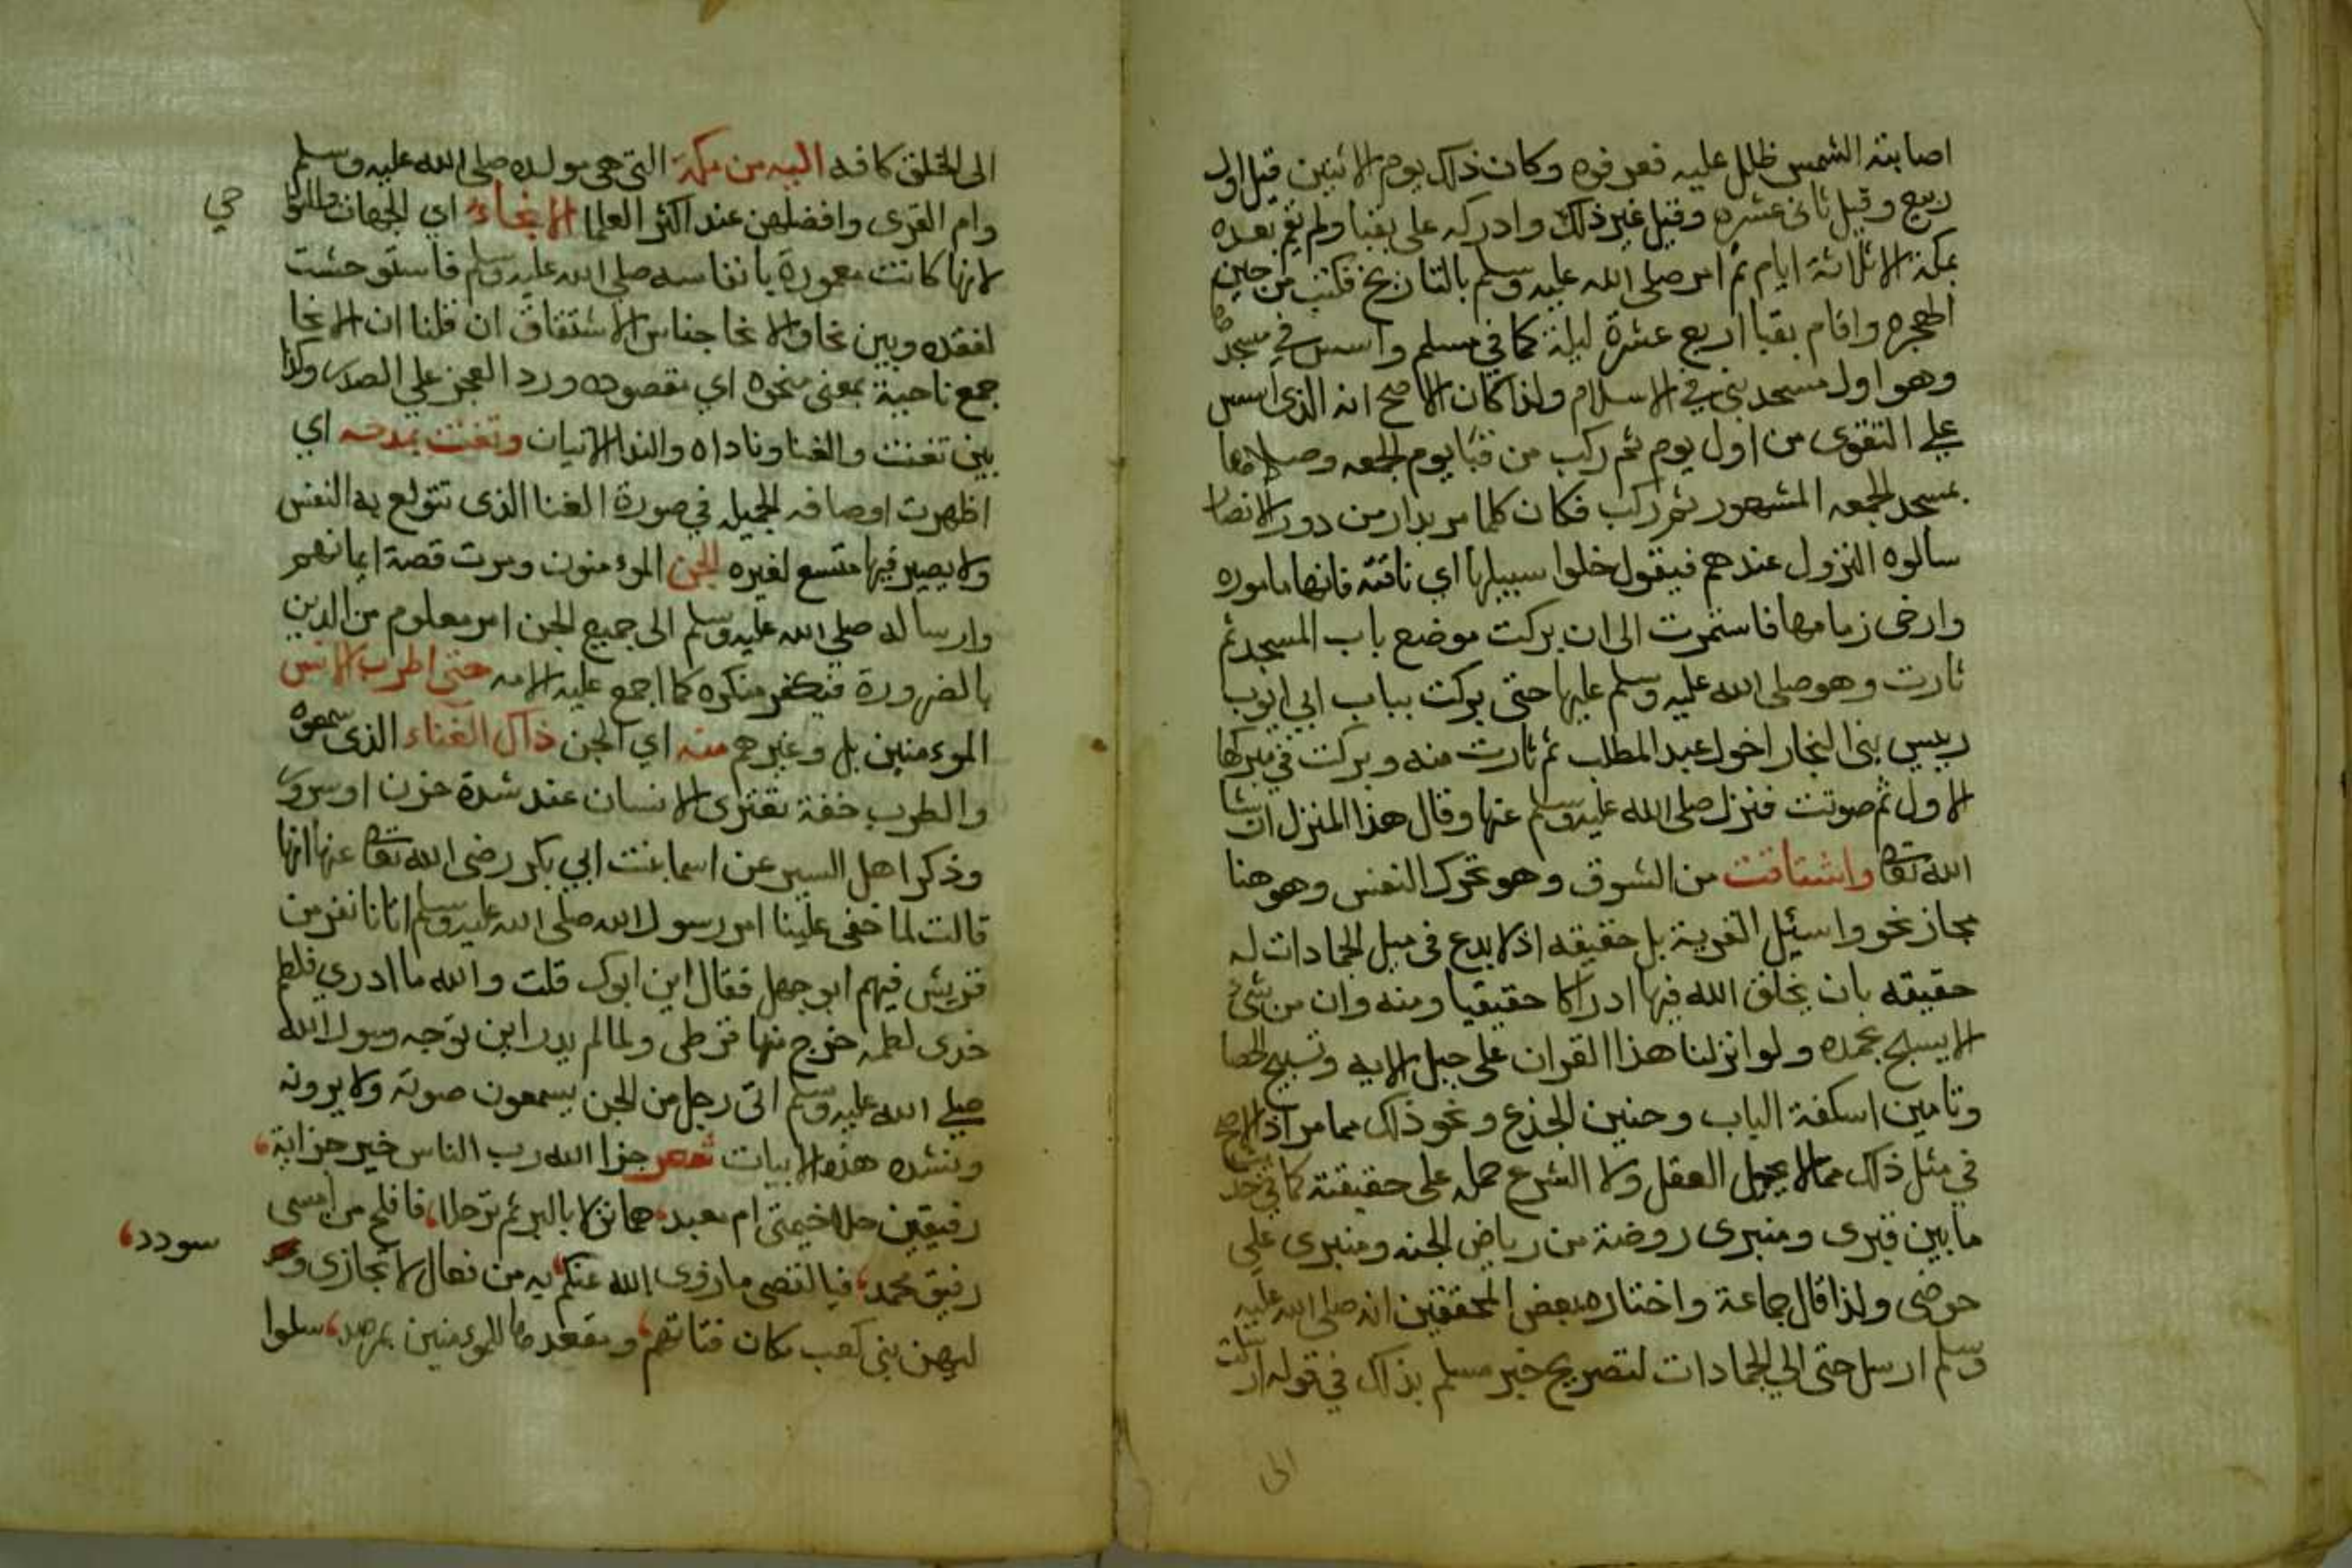 اصابته الشمس ظلل عليه فعرفوه وكان ذاك يوم الاثنين قيل اول
ربيع وقيل ثانى عشره وقيل غير ذلك وادركه على بقبا ولم يقم بعده
بمكة الا ثلاثة ايام ثم امر صلى الله عليه وسلم بالتاريخ فكتب من حين
الهجره واقام بقبا اربع عشرة ليلة كما في مسلم واسس في مسجده
وهو اول مسجد بنى في الاسلام ولذا كان الاصح انه الذى اسس
على التقوى من اول يوم ثم ركب من قبا يوم الجمعه وصلاها
بمسجد الجمعه المشهور ثم ركب فكان كلما مر بدار من دور الانصار
سالوه النزول عندهم فيقول خلوا سبيلها اي ناقته فانها ماموره
وارخى زمامها فاستمرت الى ان بركت موضع باب المسجد ثم
ثارت وهو صلى الله عليه وسلم عليها حتى بركت بباب ابي ايوب
رييس بنى النجار اخول عبد المطلب ثم ثارت منه وبركت في مبركها
الاول ثم صوتت فنزل صلى الله عليه وسلم عنها وقال هذا المنزل ان شا
الله تعا واشتاقت من الشوق وهو تحرك النفس وهو هنا
مجاز نحو واسئل القرية بل حقيقه اذ لا بدع في ميل الجمادات له
حقيقه بان يخلق الله فيها ادراكا حقيقيا ومنه وان من شئ
الا يسبح بحمده ولو انزلنا هذا القران على جبل الايه وتسبيح الحصا
وتامين اسكفة الباب وحنين الجذع ونحو ذاك مما مر اذ الاصح
في مثل ذاك مما لا يحيل العقل ولا الشرع حمله على حقيقته كما في خبر
ما بين قبرى ومنبرى روضة من رياض الجنه ومنبرى على
حوضى ولذا قال جماعة واختاره بعض المحققين انه صلى الله عليه
وسلم ارسل حتى الي الجمادات لتصريح خبر مسلم بذاك في قوله ارسلت
الى
الى الخلق كافه اليه من مكة التى هى مولده صلى الله عليه وسلم
وام القرى وافضلهن عند اكثر العلما الانحاء اي الجهات والنوا
حي
لانها كانت معمورة بانفاسه صلى الله عليه وسلم فاستوحشت
لفقده وبين نحا والانحا جناس الاشتقاق ان قلنا ان الانحا
جمع ناحية بمعنى منحوه اي مقصوده ورد العجز على الصدر وكذا
بين تغنت والغنا وناداه والندا الاتيان وتغنت بمدحه اي
اظهرت اوصافه الجميله في صورة الغنا الذى تتولع به النفس
ولا يصير فيها متسع لغيره الجن الموءمنون ومرت قصة ايمانهم
وارساله صلى الله عليه وسلم الى جميع الجن امر معلوم من الدين
بالضرورة فيكفر منكره كما اجمع عليه الامه حتى اطرب الانس
الموءمنين بل وغيرهم منه اي الجن ذاك الغناء الذى سمعوه
والطرب خفة تعترى الانسان عند شدة حزن او سرور
وذكر اهل السير عن اسما بنت ابي بكر رضى الله تعا عنها انها
قالت لما خفى علينا امر رسول الله صلى الله عليه وسلم اتانا نفر من
قريش فيهم ابو جهل فقال اين ابوك قلت والله ما ادري فلطم
خدى لطمه خرج منها قرطى ولما لم يدر اين توجه رسول الله
صلى الله عليه وسلم اتى رجل من الجن يسمعون صوته ولا يرونه
وينشده هذه الابيات شعر جزا الله رب الناس خير جزاية،
رفيقين حلا خيمتى ام معبد، هما نزلا بالبر ثم ترحلا، فافلح من امسى
رفيق محمد، فيا لقصى ما زوى الله عنكم، به من فعال لا تجازى و
سودد،
ليهن بنى كعب مكان فتاتهم، ومقعدها للموءمنين بمرصد، سلوا